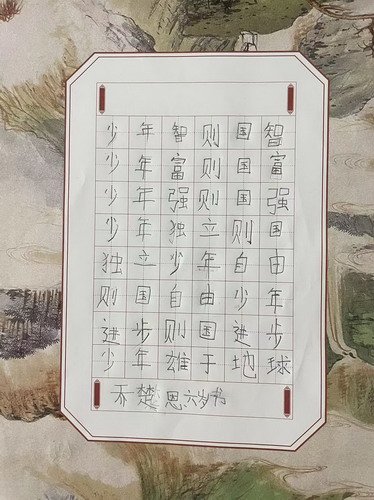 少年智则国智
少年富则国富
少年强则国强
少年独立则国
独立少年自由
则国自由少年
进步则国进步
少年雄于地球
乔楚恩六岁书